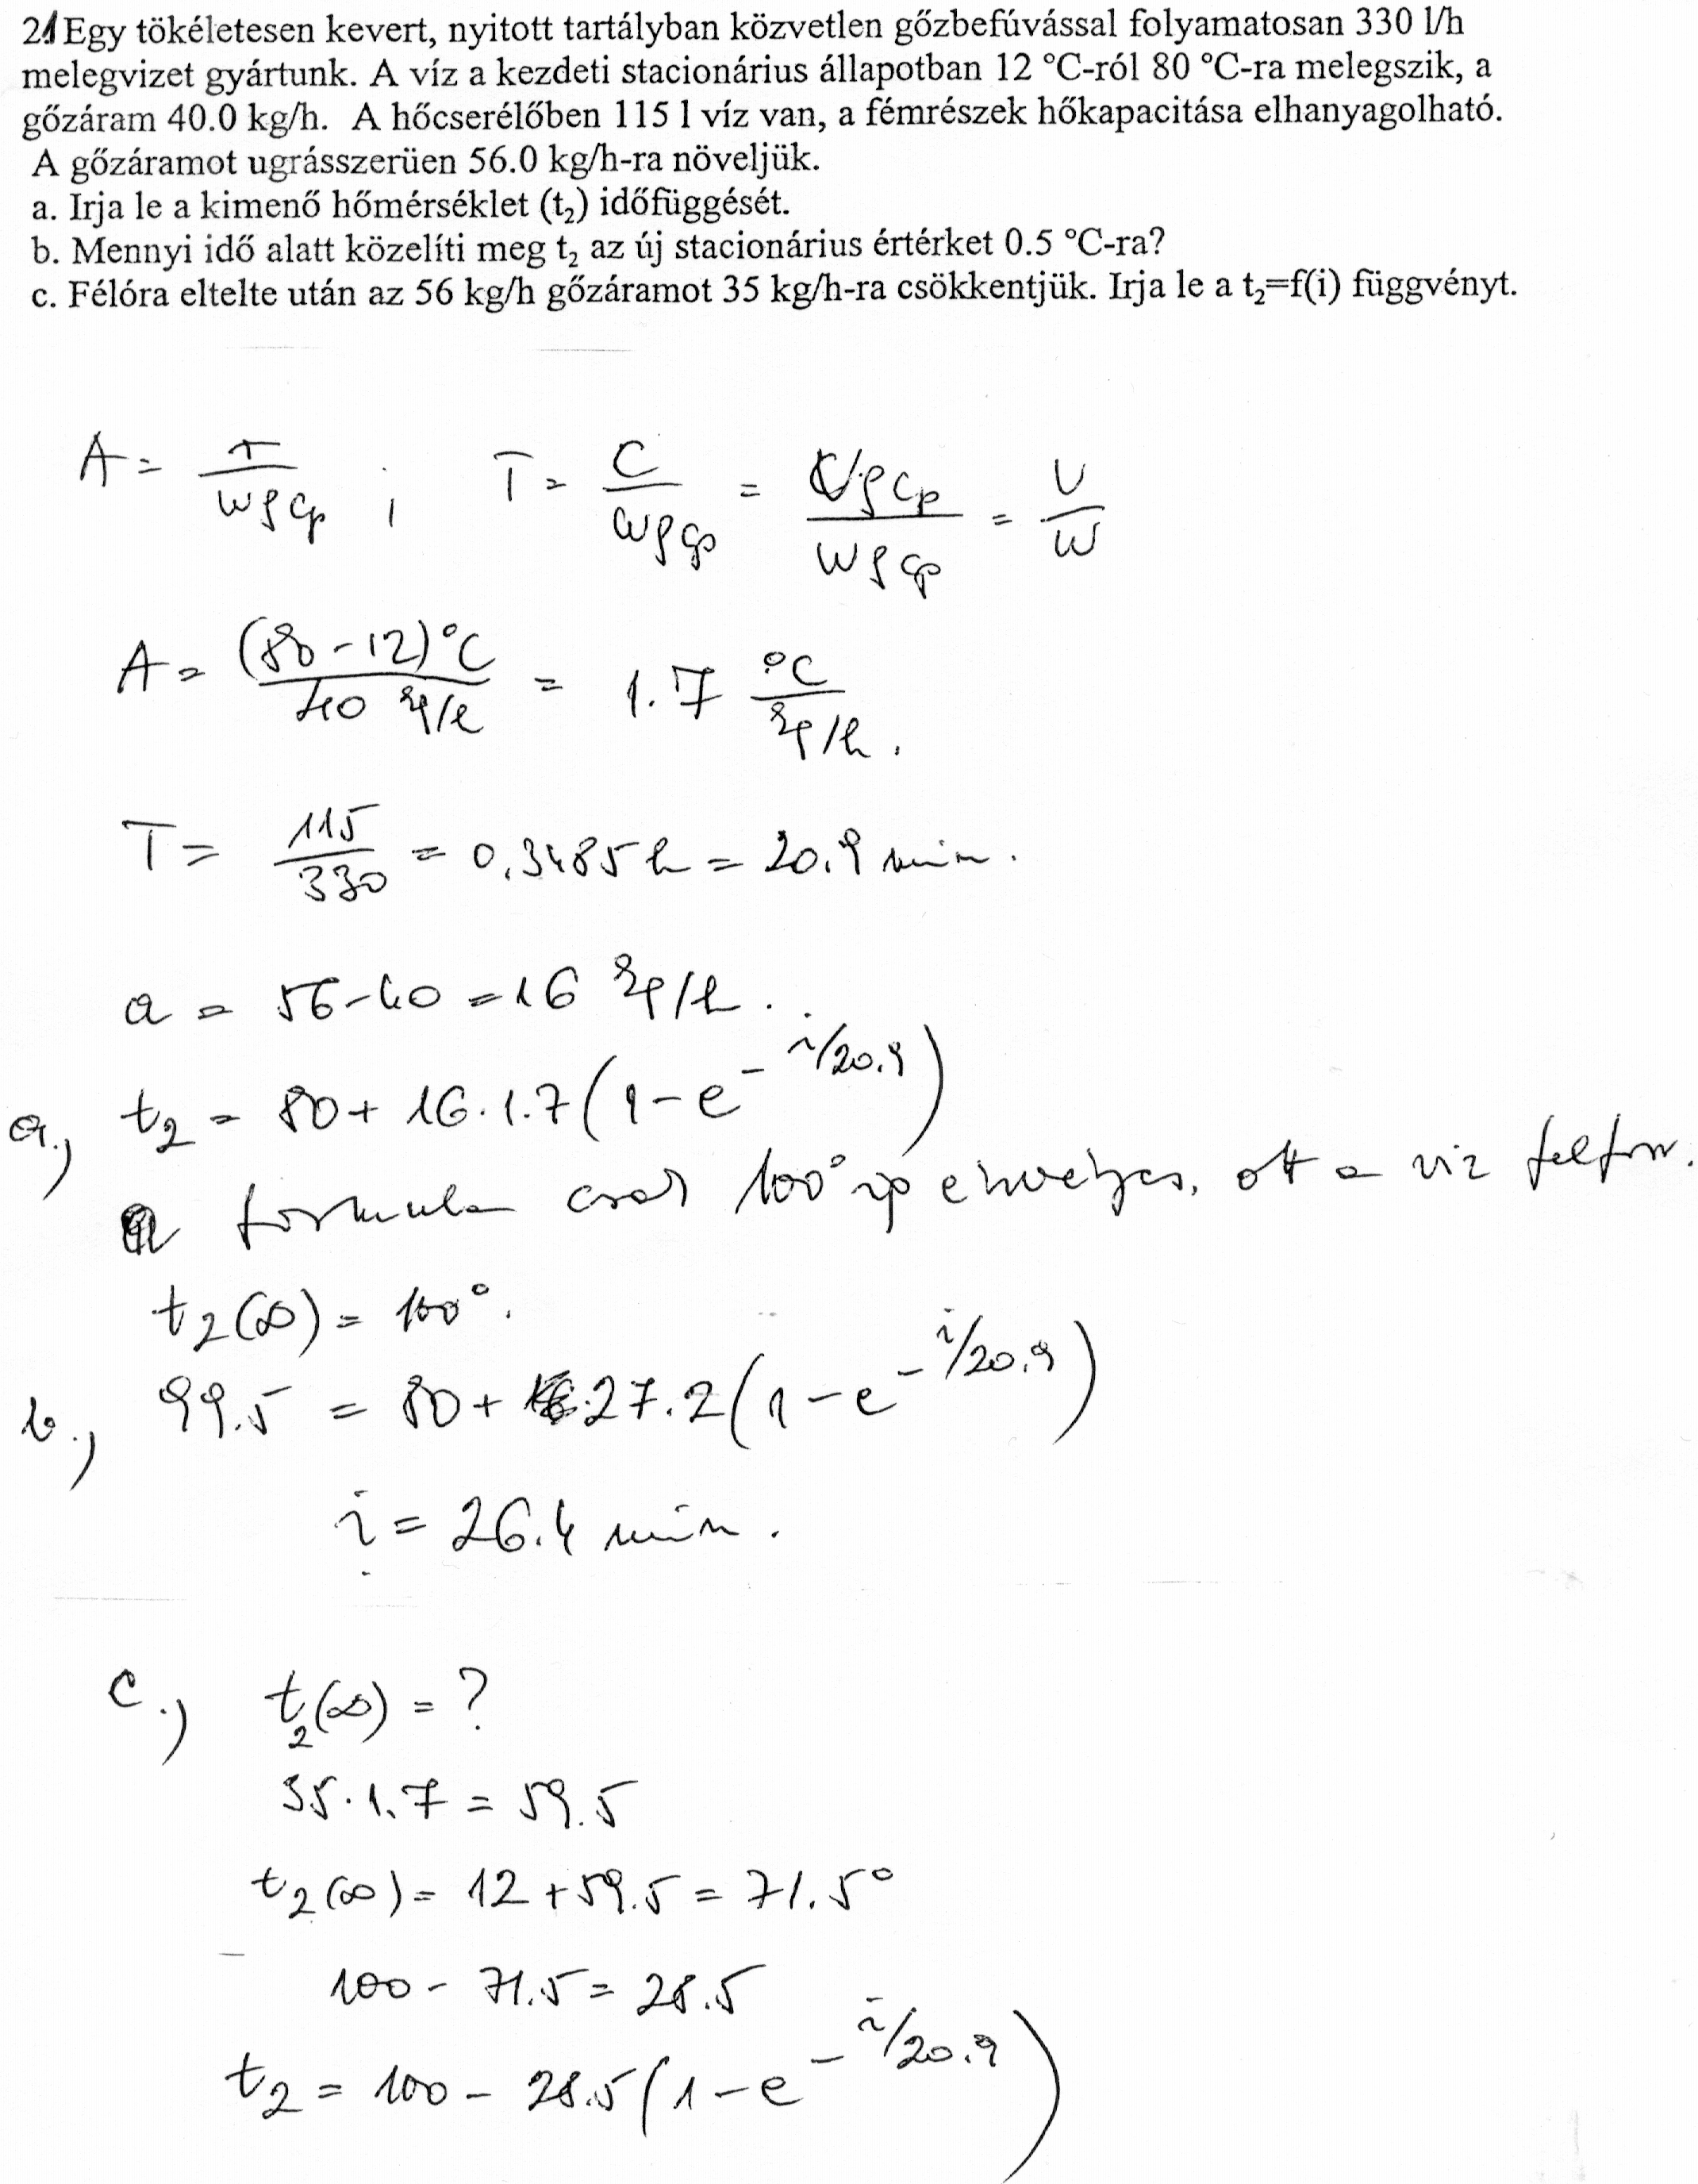 21 Egy tökéletesen kevert, nyitott tartályban közvetlen gőzbefúvással folyamatosan 330 l/h
melegvizet gyártunk. A víz a kezdeti stacionárius állapotban 12 °C-ról 80 °C-ra melegszik, a
gőzáram 40.0 kg/h. A hőcserélőben 115 l víz van, a fémrészek hőkapacitása elhanyagolható.
A gőzáramot ugrásszerüen 56.0 kg/h-ra növeljük.
a. Irja le a kimenő hőmérséklet (t₂) időfüggését.
b. Mennyi idő alatt közelíti meg t₂ az új stacionárius értérket 0.5 °C-ra?
c. Félóra eltelte után az 56 kg/h gőzáramot 35 kg/h-ra csökkentjük. Irja le a t₂=f(i) függvényt.
A = r/(wρcp) ; T = C/(wρcp) = Vρcp/(wρcp) = V/w
A = (80-12)°C/(40 kg/h) = 1.7 °C/(kg/h).
T = 115/330 = 0.3485 h = 20.9 min.
a = 56-40 = 16 kg/h.
a.) t₂ = 80 + 16·1.7 (1-e^(-i/20.9))
A formula csak 100°ig érvényes, ott a víz felforr.
t₂(∞) = 100°.
b.) 99.5 = 80 + 27.2 (1-e^(-i/20.9))
i = 26.4 min.
c.) t₂(∞) = ?
35·1.7 = 59.5
t₂(∞) = 12 + 59.5 = 71.5°
100 - 71.5 = 28.5
t₂ = 100 - 28.5 (1-e^(-i/20.9))